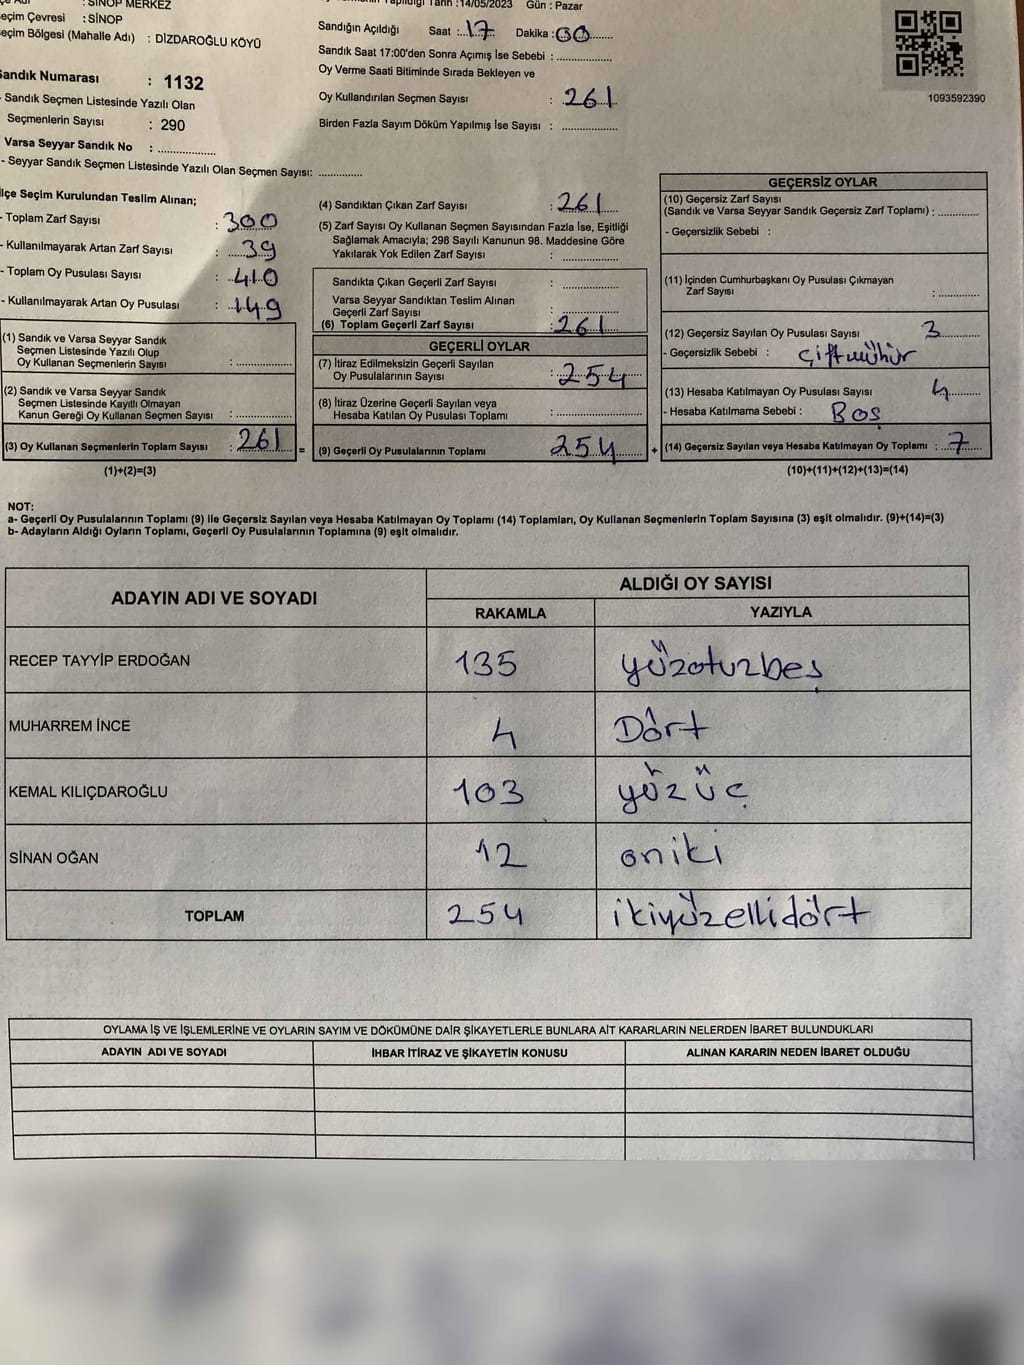 : SİNOP MERKEZ
eçim Çevresi : SİNOP
eçim Bölgesi (Mahalle Adı) : DİZDAROĞLU KÖYÜ
andık Numarası : 1132
- Sandık Seçmen Listesinde Yazılı Olan
Seçmenlerin Sayısı : 290
Varsa Seyyar Sandık No : ................
- Seyyar Sandık Seçmen Listesinde Yazılı Olan Seçmen Sayısı: ............
Tarih :14/05/2023 Gün : Pazar
Sandığın Açıldığı Saat :..17 Dakika :00........
Sandık Saat 17:00'den Sonra Açımış İse Sebebi : ................
Oy Verme Saati Bitiminde Sırada Bekleyen ve
Oy Kullandırılan Seçmen Sayısı : 261
Birden Fazla Sayım Döküm Yapılmış İse Sayısı : ................
1093592390
lçe Seçim Kurulundan Teslim Alınan;
- Toplam Zarf Sayısı : 300
- Kullanılmayarak Artan Zarf Sayısı : 39
- Toplam Oy Pusulası Sayısı : 410
- Kullanılmayarak Artan Oy Pusulası : 149
(1) Sandık ve Varsa Seyyar Sandık
Seçmen Listesinde Yazılı Olup
Oy Kullanan Seçmenlerin Sayısı : ................
(2) Sandık ve Varsa Seyyar Sandık
Seçmen Listesinde Kayıtlı Olmayan
Kanun Gereği Oy Kullanan Seçmen Sayısı : ................
(3) Oy Kullanan Seçmenlerin Toplam Sayısı : 261 =
(1)+(2)=(3)
(4) Sandıktan Çıkan Zarf Sayısı : 261
(5) Zarf Sayısı Oy Kullanan Seçmen Sayısından Fazla İse, Eşitliği
Sağlamak Amacıyla; 298 Sayılı Kanunun 98. Maddesine Göre
Yakılarak Yok Edilen Zarf Sayısı : ................
Sandıkta Çıkan Geçerli Zarf Sayısı : ................
Varsa Seyyar Sandıktan Teslim Alınan
Geçerli Zarf Sayısı : ................
(6) Toplam Geçerli Zarf Sayısı : 261
GEÇERLİ OYLAR
(7) İtiraz Edilmeksizin Geçerli Sayılan
Oy Pusulalarının Sayısı : 254
(8) İtiraz Üzerine Geçerli Sayılan veya
Hesaba Katılan Oy Pusulası Toplamı : ................
(9) Geçerli Oy Pusulalarının Toplamı 254 +
GEÇERSİZ OYLAR
(10) Geçersiz Zarf Sayısı
(Sandık ve Varsa Seyyar Sandık Geçersiz Zarf Toplamı) : ............
- Geçersizlik Sebebi :
(11) İçinden Cumhurbaşkanı Oy Pusulası Çıkmayan
Zarf Sayısı : ............
(12) Geçersiz Sayılan Oy Pusulası Sayısı 3
- Geçersizlik Sebebi : çift mühür
(13) Hesaba Katılmayan Oy Pusulası Sayısı 4
- Hesaba Katılmama Sebebi : BOŞ
(14) Geçersiz Sayılan veya Hesaba Katılmayan Oy Toplamı : 7
(10)+(11)+(12)+(13)=(14)
NOT:
a- Geçerli Oy Pusulalarının Toplamı (9) ile Geçersiz Sayılan veya Hesaba Katılmayan Oy Toplamı (14) Toplamları, Oy Kullanan Seçmenlerin Toplam Sayısına (3) eşit olmalıdır. (9)+(14)=(3)
b- Adayların Aldığı Oyların Toplamı, Geçerli Oy Pusulalarının Toplamına (9) eşit olmalıdır.
ADAYIN ADI VE SOYADI ALDIĞI OY SAYISI
RAKAMLA YAZIYLA
RECEP TAYYİP ERDOĞAN 135 yüzotuzbeş
MUHARREM İNCE 4 Dört
KEMAL KILIÇDAROĞLU 103 yüzüç
SİNAN OĞAN 12 oniki
TOPLAM 254 ikiyüzellidört
OYLAMA İŞ VE İŞLEMLERİNE VE OYLARIN SAYIM VE DÖKÜMÜNE DAİR ŞİKAYETLERLE BUNLARA AİT KARARLARIN NELERDEN İBARET BULUNDUKLARI
ADAYIN ADI VE SOYADI İHBAR İTİRAZ VE ŞİKAYETİN KONUSU ALINAN KARARIN NEDEN İBARET OLDUĞU